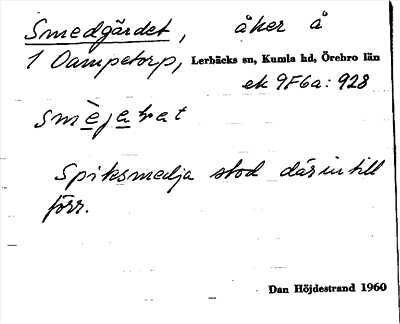 Smedgärdet, åker å
1 Dampetorp, Lerbäcks sn, Kumla hd, Örebro län
ek 9F6a: 928
smèjat
Spiksmedja stod därintill
förr.
Dan Höjdestrand 1960